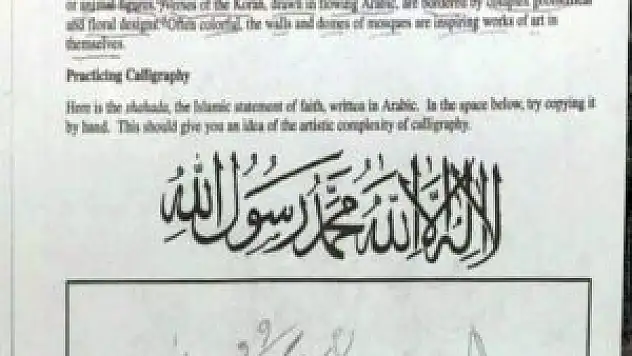 or animal figures, verses of the Koran, drawn in flowing Arabic, are bordered by complex geometrical
and floral designs. Often colorful, the walls and domes of mosques are inspiring works of art in
themselves.
Practicing Calligraphy
Here is the shahada, the Islamic statement of faith, written in Arabic. In the space below, try copying it
by hand. This should give you an idea of the artistic complexity of calligraphy.
لا إله إلا الله محمد رسول الله